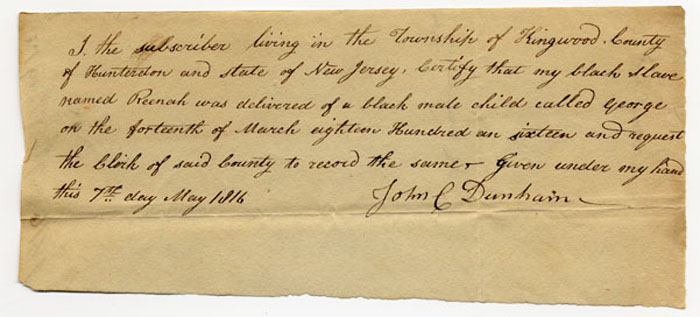 I. the subscriber living in the Township of Kingwood. County
of Hunterdon and state of New Jersey. Certify that my black slave
named Reenah was delivered of a black male child called George
on the forteenth of March eighteen Hundred an sixteen and request
the Clerk of said County to record the same + Given under my hand
this 7th day May 1816 John C Dunham